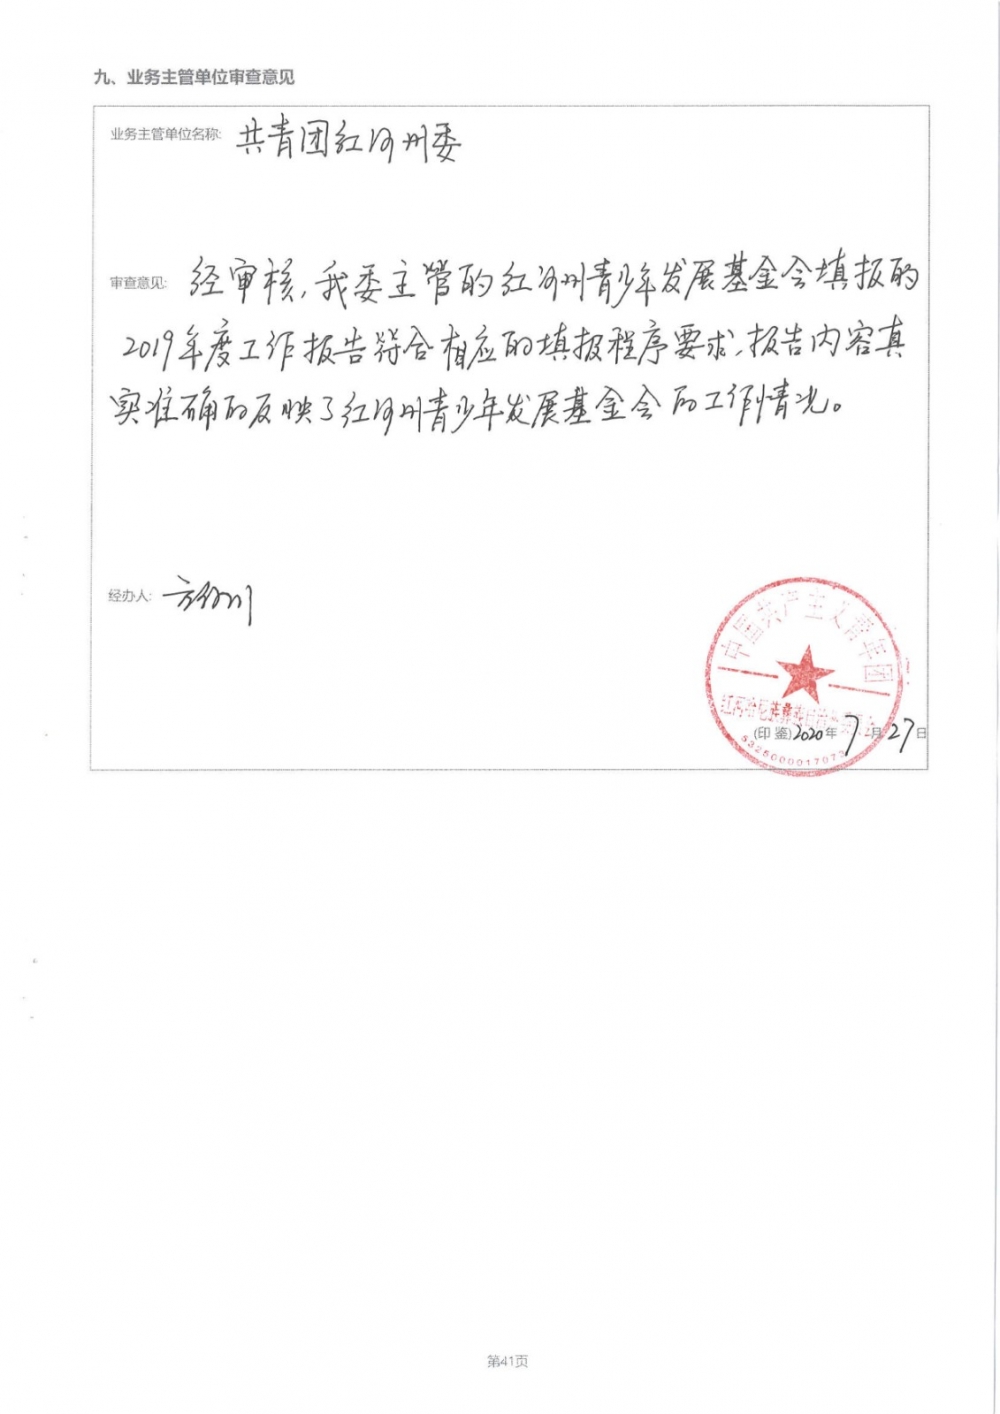 九、业务主管单位审查意见
业务主管单位名称: 共青团红河州委
审查意见: 经审核,我委主管的红河州青少年发展基金会填报的
2019年度工作报告符合相应的填报程序要求,报告内容真
实准确的反映了红河州青少年发展基金会的工作情况。
经办人:
中国共产主义青年团
(印 鉴) 2020年 7月27日
第41页